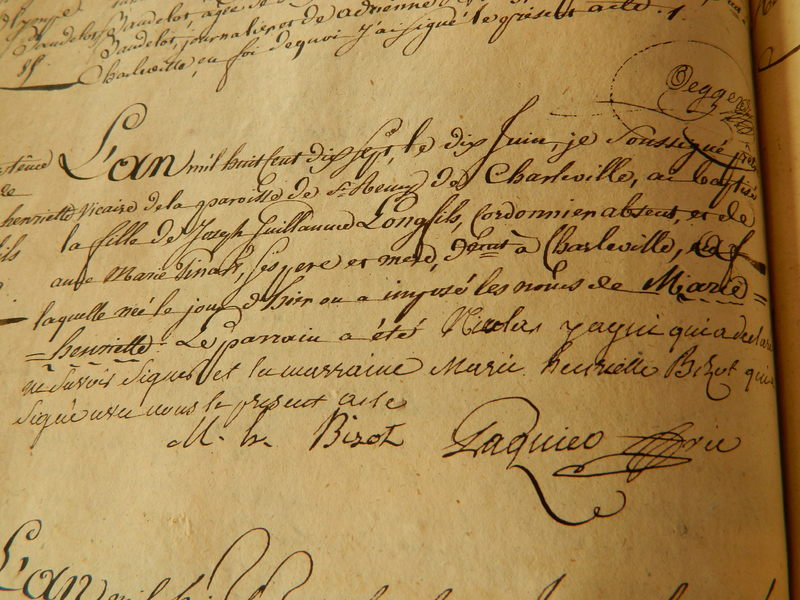 Baudelot, agée de
Baudelot, journalier et de adrienne
Charleville, en foi de quoi j'ai signé le présent acte.
Degger
L'an mil huit cent dix sept, le dix juin, je soussigné
henriette vicaire de la paroisse de St Remy de Charleville, ai baptisé
ils la fille de Joseph Guillaume Longfils, Cordonnier absent, et de
Marie ses pere et mere, à Charleville,
laquelle née le jour d'hier on a imposé les noms de Marie=
=henriette. Le parrain a été Nicolas qui a declaré
ne savoir signer et la marraine Marie henriette Bizot qui a
signé avec nous le present acte
M. h. Bizot Paquier vic
L'an mil